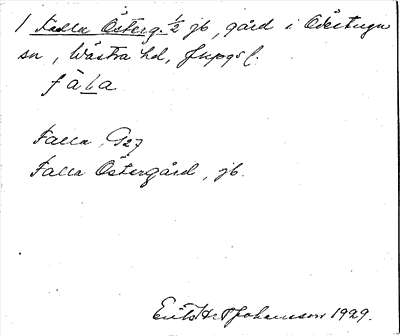 1 Falla Österg. 1/2 jb, gård i Öd
sn, Västra hd, Jnkpgs l.
fala
Falla, G27
Falla Östergård, jb.
Johansson 1929.